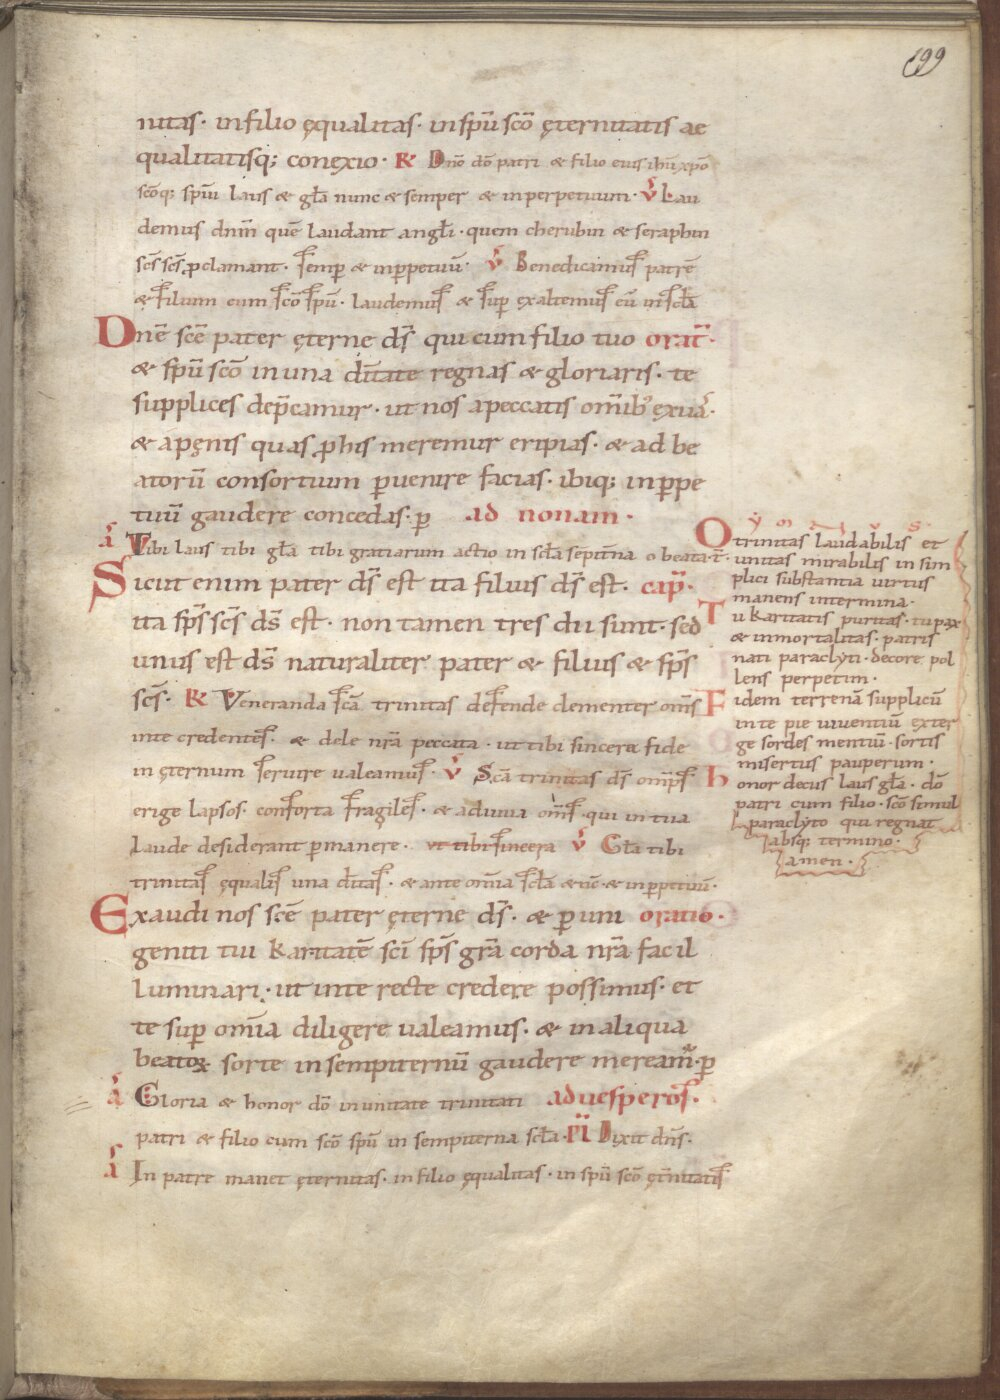 199
nitas· in filio ęqualitas· in spū scō ęternitatis ae
qualitatisq; conexio· R Dnō dō patri & filio eius ihū xpō
scōq; spūi laus & glā nunc & semper & in perpetuum· V Lau
demus dnm̄ quē laudant anglī· quem cherubin & seraphin
scs̄ scs̄ proclamant· semp̄ & inp̄petuū· V Benedicamus patrē
& filium cum scō spū· laudemus & sup̄ exaltemus eū in sclā
Dnē scē pater ęterne ds̄ qui cum filio tuo orat̄·
& spū scō in una dītate regnas & gloriaris· te
supplices dep̄camur· ut nos a peccatis omīb; ęxuā·
& a pęnis quas pro his meremur eripias· & ad be
atorū consortium p̄uenire facias· ibiq; in p̄pe
tuū gaudere concedas· p̄ ad nonam·
ā Tibi laus tibi glā tibi gratiarum actio in sclā sempit̄na o beata·t̄·
Sicut enim pater ds̄ est ita filius ds̄ est· cap̄·
ita sps̄ scs̄ ds̄ est· non tamen tres dii sunt· sed
unus est ds̄ naturaliter pater & filius & sps̄
scs̄· R Veneranda scā trinitas defende clementer oms̄
in te credentes· & dele nrā peccata· ut tibi sincera fide
in ęternum seruire ualeamus· V Scā trinitas ds̄ omp̄s
erige lapsos· conforta fragiles· & adiuua oms̄ qui in tua
laude desiderant p̄manere· ut tibi sincera V Glā tibi
trinitas ęqualis una dītas· & ante omīa sclā & nc̄· & inp̄petuū·
Exaudi nos scē pater ęterne ds̄· & p̄ uni oratio·
geniti tui karitatē scī sps̄ grā corda nrā fac il
luminari· ut in te recte credere possimus· et
te sup̄ omīa diligere ualeamus· & in aliqua
beatoꝝ sorte in sempiternū gaudere meream̄· p̄
ā Gloria & honor dō in unitate trinitati ad uesperos·
patri & filio cum scō spū in sempiterna sclā· Dixit dns̄·
ā In patre manet ęternitas· in filio ęqualitas· in spū scō ęt̄nitatis
O trinitas laudabilis et
unitas mirabilis in sim
plici substantia uirtus
manens intermina·
Tu karitatis puritas· tu pax
& inmortalitas· patris
nati paraclyti· decore pol
lens perpetim·
Fidem terrenā supplicū
in te pie uiuentiū exter
ge sordes mentiū· sortis
misertus pauperum·
honor decus laus glā· dō
patri cum filio· scō simul
paraclyto qui regnat
absq; termino·
amen·